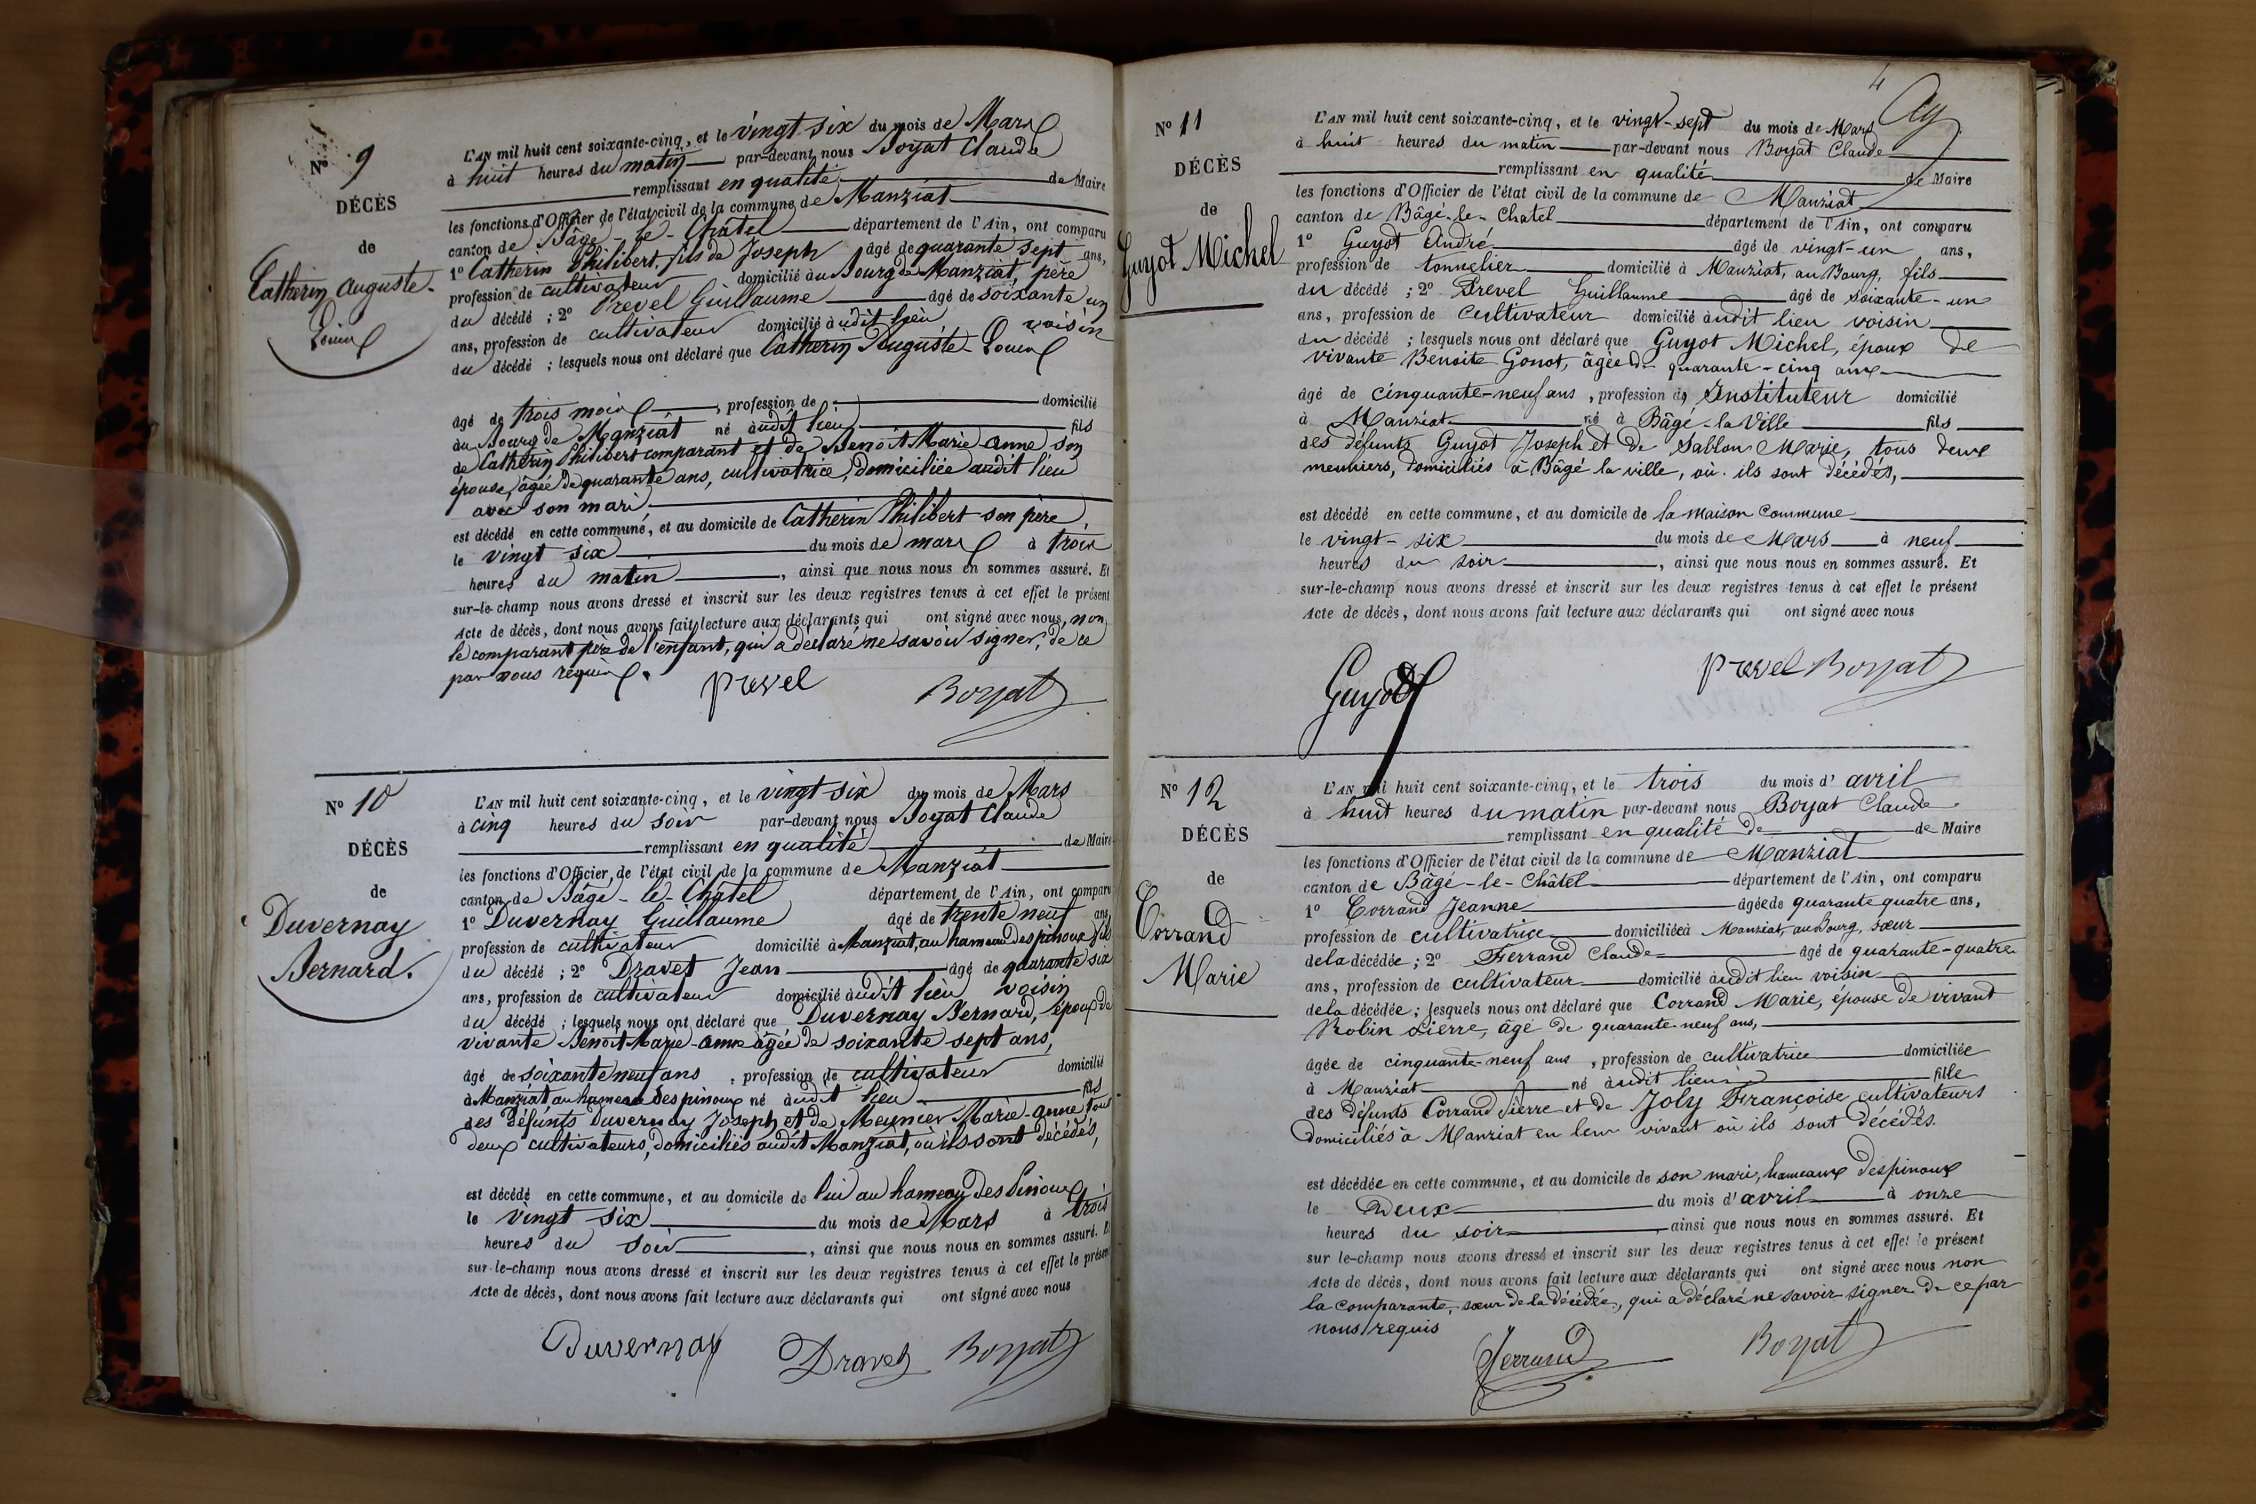 N° 9
DÉCÈS
de
Catherin Auguste-
Louis
L'AN mil huit cent soixante-cinq, et le vingt six du mois de Mars
à huit heures du matin par-devant nous Boyat Claude
remplissant en qualité de Maire
les fonctions d'Officier de l'état civil de la commune de Manziat
canton de Bâgé-le-Châtel département de l'Ain, ont comparu
1° Catherin Philibert, fils de Joseph âgé de quarante sept ans,
profession de cultivateur domicilié au Bourg de Manziat, père
du décédé ; 2° Prevel Guillaume âgé de soixante un
ans, profession de cultivateur domicilié audit lieu voisin
du décédé ; lesquels nous ont déclaré que Catherin Auguste-Louis
âgé de trois mois, profession de domicilié
au Bourg de Manziat né audit lieu fils
de Catherin Philibert comparant et de Benoît Marie-Anne son
épouse, âgée de quarante ans, cultivatrice, domiciliée audit lieu
avec son mari
est décédé en cette commune, et au domicile de Catherin Philibert son père,
le vingt six du mois de mars à trois
heures du matin, ainsi que nous nous en sommes assuré. Et
sur-le-champ nous avons dressé et inscrit sur les deux registres tenus à cet effet le présent
Acte de décès, dont nous avons fait lecture aux déclarants qui ont signé avec nous, non
le comparant père de l'enfant, qui a déclaré ne savoir signer, de ce
par nous requis.
Prevel Boyat
N° 10
DÉCÈS
de
Duvernay
Bernard.
L'AN mil huit cent soixante-cinq, et le vingt six du mois de Mars
à cinq heures du soir par-devant nous Boyat Claude
remplissant en qualité de Maire
les fonctions d'Officier de l'état civil de la commune de Manziat
canton de Bâgé-le-Châtel département de l'Ain, ont comparu
1° Duvernay Guillaume âgé de trente neuf ans
profession de cultivateur domicilié à Manziat, au hameau des pinoux fils
du décédé ; 2° Dravet Jean âgé de quarante six
ans, profession de cultivateur domicilié audit lieu voisin
du décédé ; lesquels nous ont déclaré que Duvernay Bernard, époux de
vivante Benoît Marie-anne âgée de soixante sept ans,
âgé de soixante neuf ans, profession de cultivateur domicilié
à Manziat au hameau des pinoux né audit lieu fils
des défunts Duvernay Joseph et de Meunier Marie-anne tous
deux cultivateurs, domiciliés audit Manziat, où ils sont décédés,
est décédé en cette commune, et au domicile de lui au hameau des Pinoux
le vingt six du mois de Mars à trois
heures du soir, ainsi que nous nous en sommes assuré. Et
sur-le-champ nous avons dressé et inscrit sur les deux registres tenus à cet effet le présent
Acte de décès, dont nous avons fait lecture aux déclarants qui ont signé avec nous
Duvernay Dravet Boyat
4
N° 11
DÉCÈS
de
Guyot Michel
L'AN mil huit cent soixante-cinq, et le vingt-sept du mois de Mars
à huit heures du matin par-devant nous Boyat Claude
remplissant en qualité de Maire
les fonctions d'Officier de l'état civil de la commune de Manziat
canton de Bâgé-le-Chatel département de l'Ain, ont comparu
1° Guyot André âgé de vingt-un ans,
profession de tonnelier domicilié à Manziat, au Bourg, fils
du décédé ; 2° Prevel Guillaume âgé de soixante-un
ans, profession de Cultivateur domicilié audit lieu voisin
du décédé ; lesquels nous ont déclaré que Guyot Michel, époux de
vivante Benoite Gonot, âgée de quarante-cinq ans
âgé de cinquante-neuf ans, profession d'Instituteur domicilié
à Manziat né à Bâgé-la-Ville fils
des défunts Guyot Joseph et de Sablon Marie, tous deux
meuniers, domiciliés à Bâgé la ville, où ils sont décédés,
est décédé en cette commune, et au domicile de la maison Commune
le vingt-six du mois de Mars à neuf
heures du soir, ainsi que nous nous en sommes assuré. Et
sur-le-champ nous avons dressé et inscrit sur les deux registres tenus à cet effet le présent
Acte de décès, dont nous avons fait lecture aux déclarants qui ont signé avec nous
Guyot Prevel Boyat
N° 12
DÉCÈS
de
Corrand
Marie
L'AN mil huit cent soixante-cinq, et le trois du mois d'avril
à huit heures du matin par-devant nous Boyat Claude
remplissant en qualité de de Maire
les fonctions d'Officier de l'état civil de la commune de Manziat
canton de Bâgé-le-Châtel département de l'Ain, ont comparu
1° Corrand Jeanne âgée de quarante quatre ans,
profession de cultivatrice domiciliée à Manziat, au Bourg, sœur
de la décédée ; 2° Ferrand Claude âgé de quarante-quatre
ans, profession de cultivateur domicilié audit lieu voisin
de la décédée ; lesquels nous ont déclaré que Corrand Marie, épouse de vivant
Robin Pierre, âgé de quarante-neuf ans,
âgée de cinquante-neuf ans, profession de cultivatrice domiciliée
à Manziat né audit lieu fille
des défunts Corrand Pierre et de Joly Françoise cultivateurs
domiciliés à Manziat en leur vivant où ils sont décédés.
est décédée en cette commune, et au domicile de son mari, hameaux des pinoux
le Deux du mois d'avril à onze
heures du soir, ainsi que nous nous en sommes assuré. Et
sur-le-champ nous avons dressé et inscrit sur les deux registres tenus à cet effet le présent
Acte de décès, dont nous avons fait lecture aux déclarants qui ont signé avec nous non
la comparante, sœur de la décédée, qui a déclaré ne savoir signer de ce par
nous requis
Ferrand Boyat